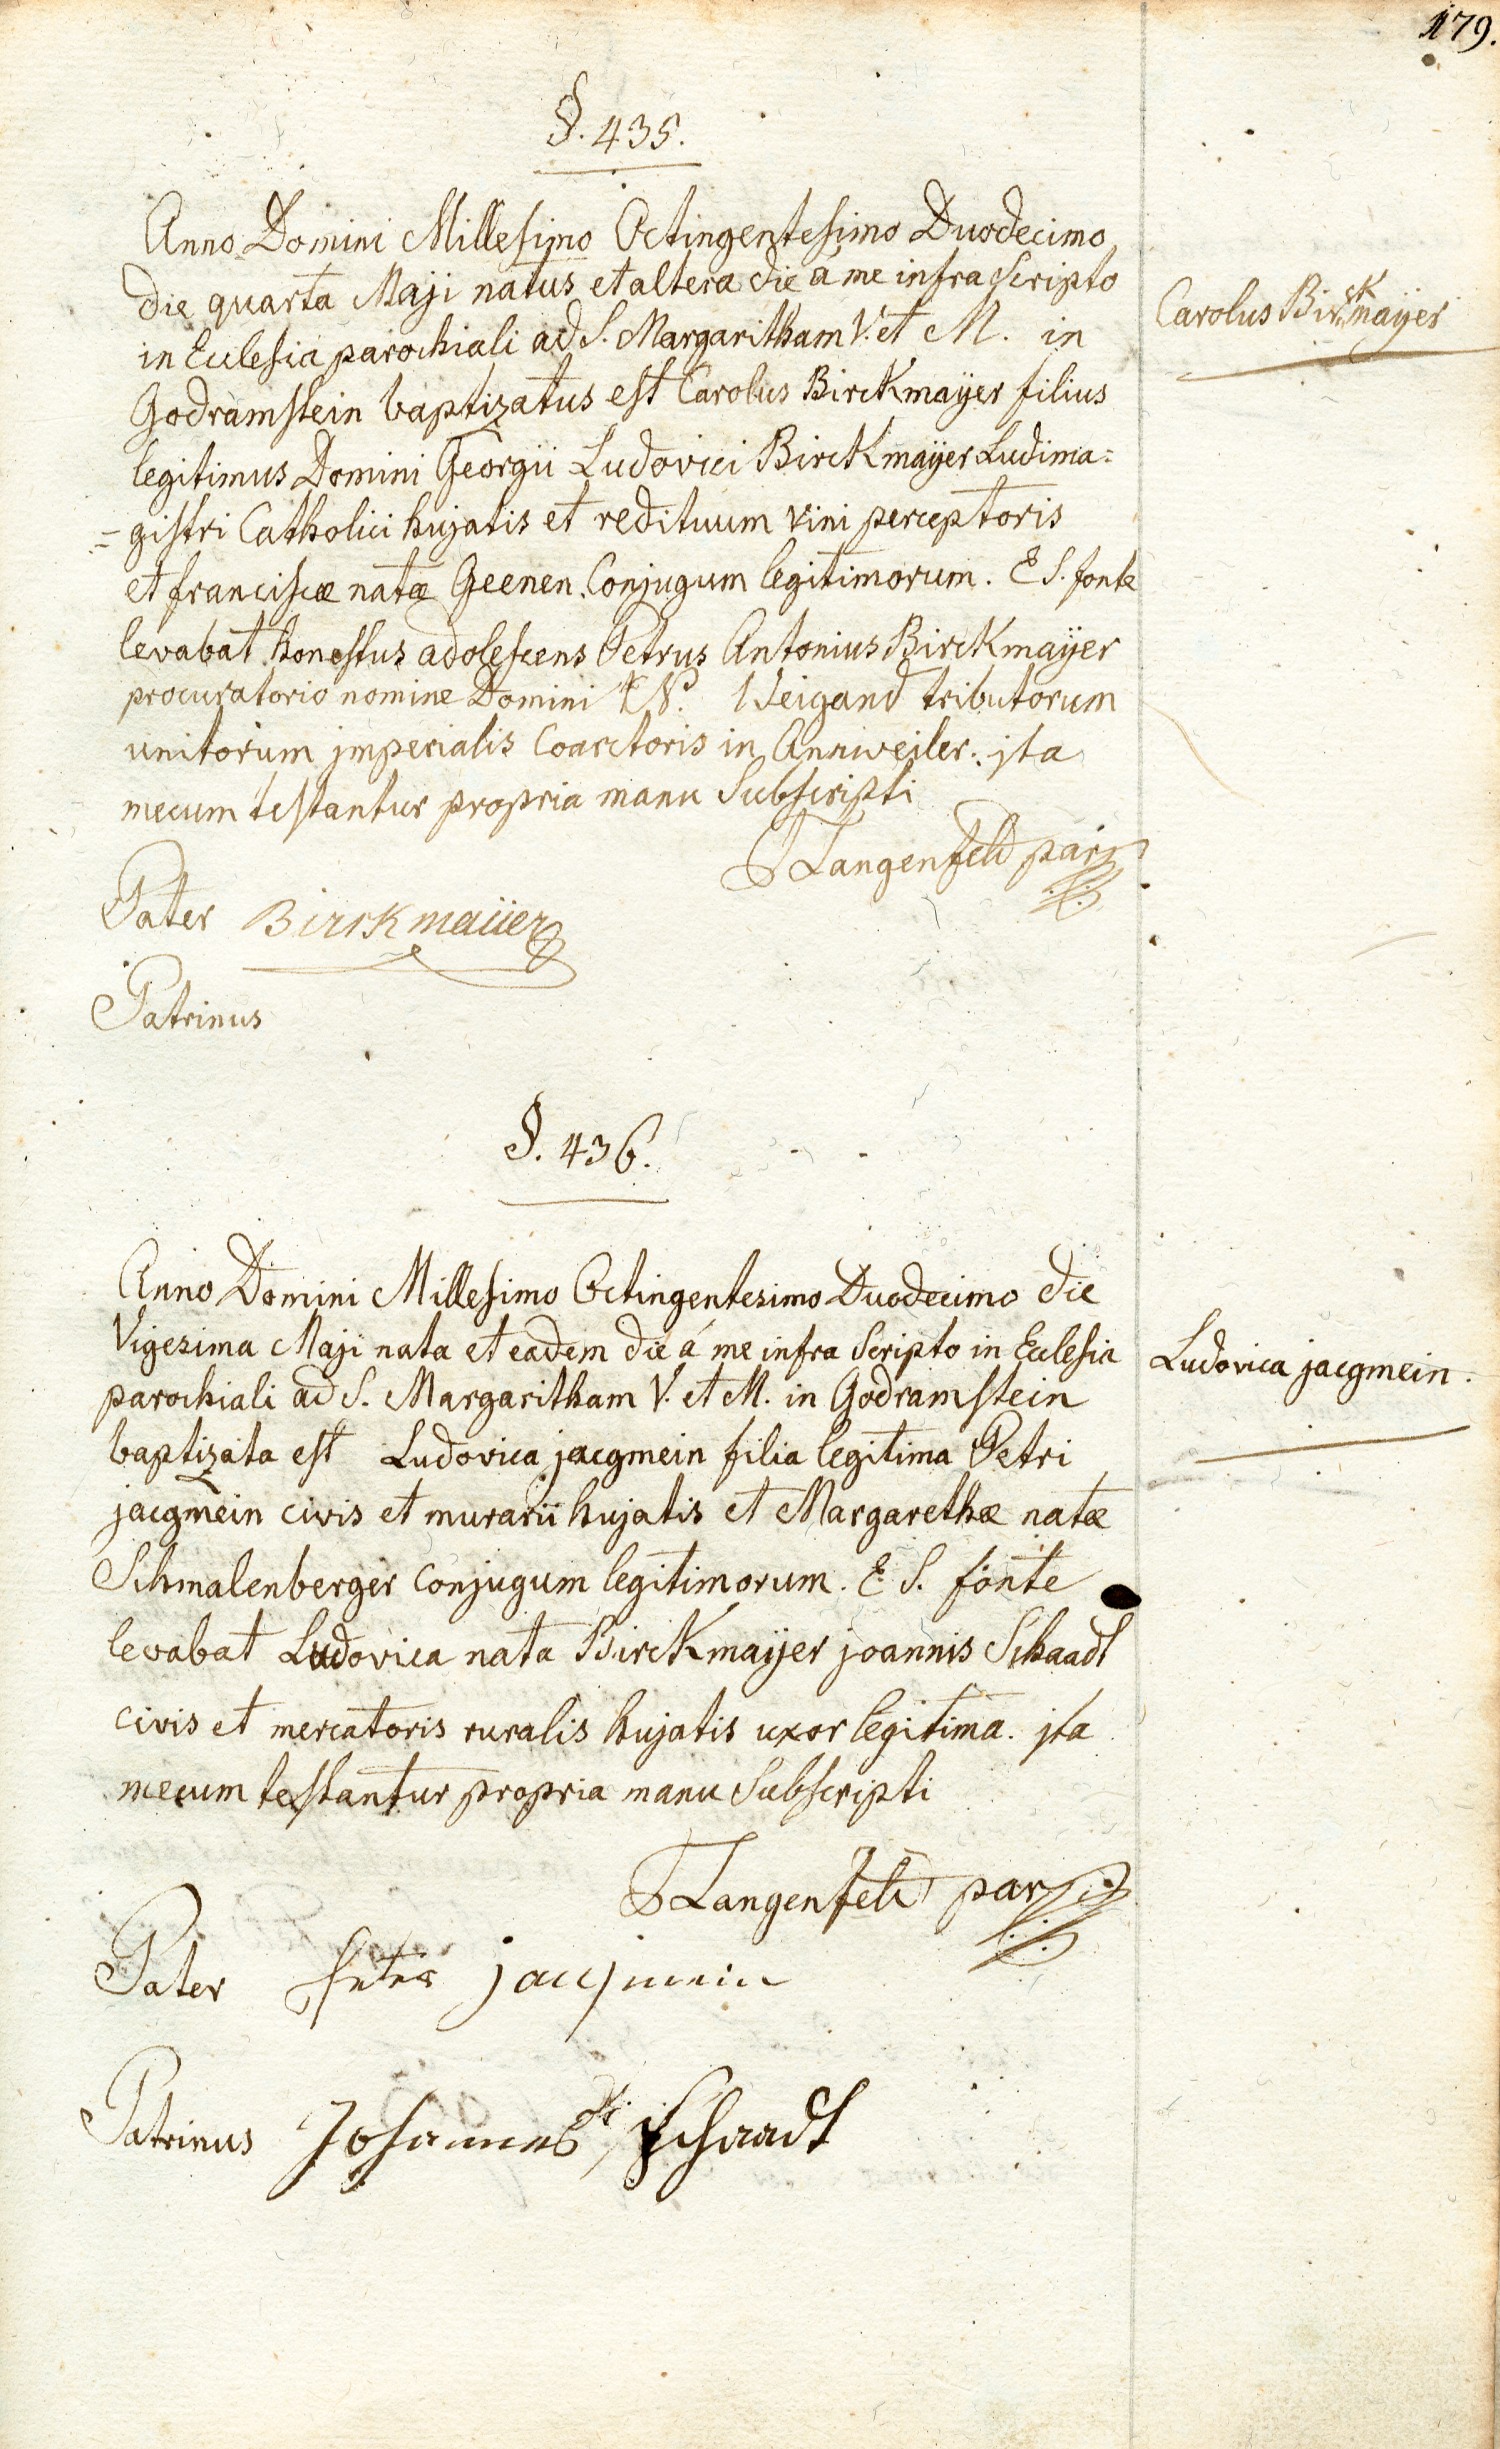 179.
§. 435.
Anno Domini Millesimo Octingentesimo Duodecimo
die quarta Maji natus et altera die á me infra Scripto
in Ecclesia parochiali ad S. Margaritham V. et M. in
Godramstein baptizatus est Carolus Birckmaÿer filius
legitimus Domini Georgii Ludovici Birckmaÿer Ludima=
=gistri Catholici hujatis et redituum vini perceptoris
et franciscæ natæ Geenen Conjugum legitimorum. E S. fonte
levabat honestus adolescens Petrus Antonius Birckmaÿer
procuratorio nomine Domini N. Weigand tributorum
unitorum jmperialis Coarctoris in Annweiler. jta
mecum testantur propria manu Subscripti
Carolus Birckmaÿer
Langenfeld par
Pater Birckmaÿer
Patrinus
§. 436.
Anno Domini Millesimo Octingentesimo Duodecimo die
Vigesima Maji nata et eadem die á me infra Scripto in Ecclesia
parochiali ad S. Margaritham V. et M. in Godramstein
baptizata est Ludovica jacgmein filia legitima Petri
jacgmein civis et murarii hujatis et Margarethæ natæ
Schmalenberger conjugum legitimorum. E S. fonte
levabat Ludovica nata Birckmaÿer joannis Schaadt
civis et mercatoris ruralis hujatis uxor legitima. jta
mecum testantur propria manu Subscripti
Ludovica jacgmein.
Langenfeld par
Pater Peter jacjmein
Patrinus Johannes Schaadt